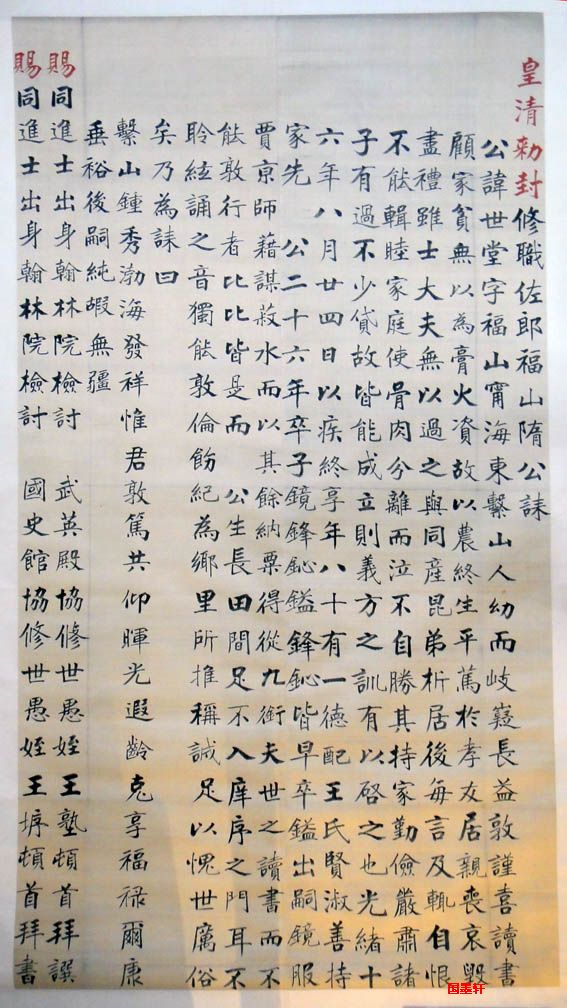 皇清勅封修職佐郎福山隋公誄
公諱世堂字福山甯海東繫山人幼而岐嶷長益敦謹喜讀書
顧家貧無以為膏火資故以農終生平篤於孝友居親喪哀毀
盡禮雖士大夫無以過之與同產昆弟析居後每言及輒自恨
不能輯睦家庭使骨肉分離而泣不自勝其持家勤儉嚴肅諸
子有過不少貸故皆能成立則義方之訓有以啓之也光緒十
六年八月廿四日以疾終享年八十有一德配王氏賢淑善持
家先 公二十六年卒子鏡鋒鈊鎰鋒鈊皆早卒鎰出嗣鏡服
賈京師藉謀菽水而以其餘納粟得從九銜夫世之讀書而不
能敦行者比比皆是而 公生長田間足不入庠序之門耳不
聆絃誦之音獨能敦倫飭紀為鄉里所推稱誠足以愧世厲俗
矣乃為誄曰
繫山鍾秀渤海發祥惟君敦篤共仰暉光遐齡克享福祿爾康
垂裕後嗣純嘏無疆
賜同進士出身翰林院檢討 武英殿協修世愚姪王塾頓首拜譔
賜同進士出身翰林院檢討 國史館協修世愚姪王垿頓首拜書
国墨轩